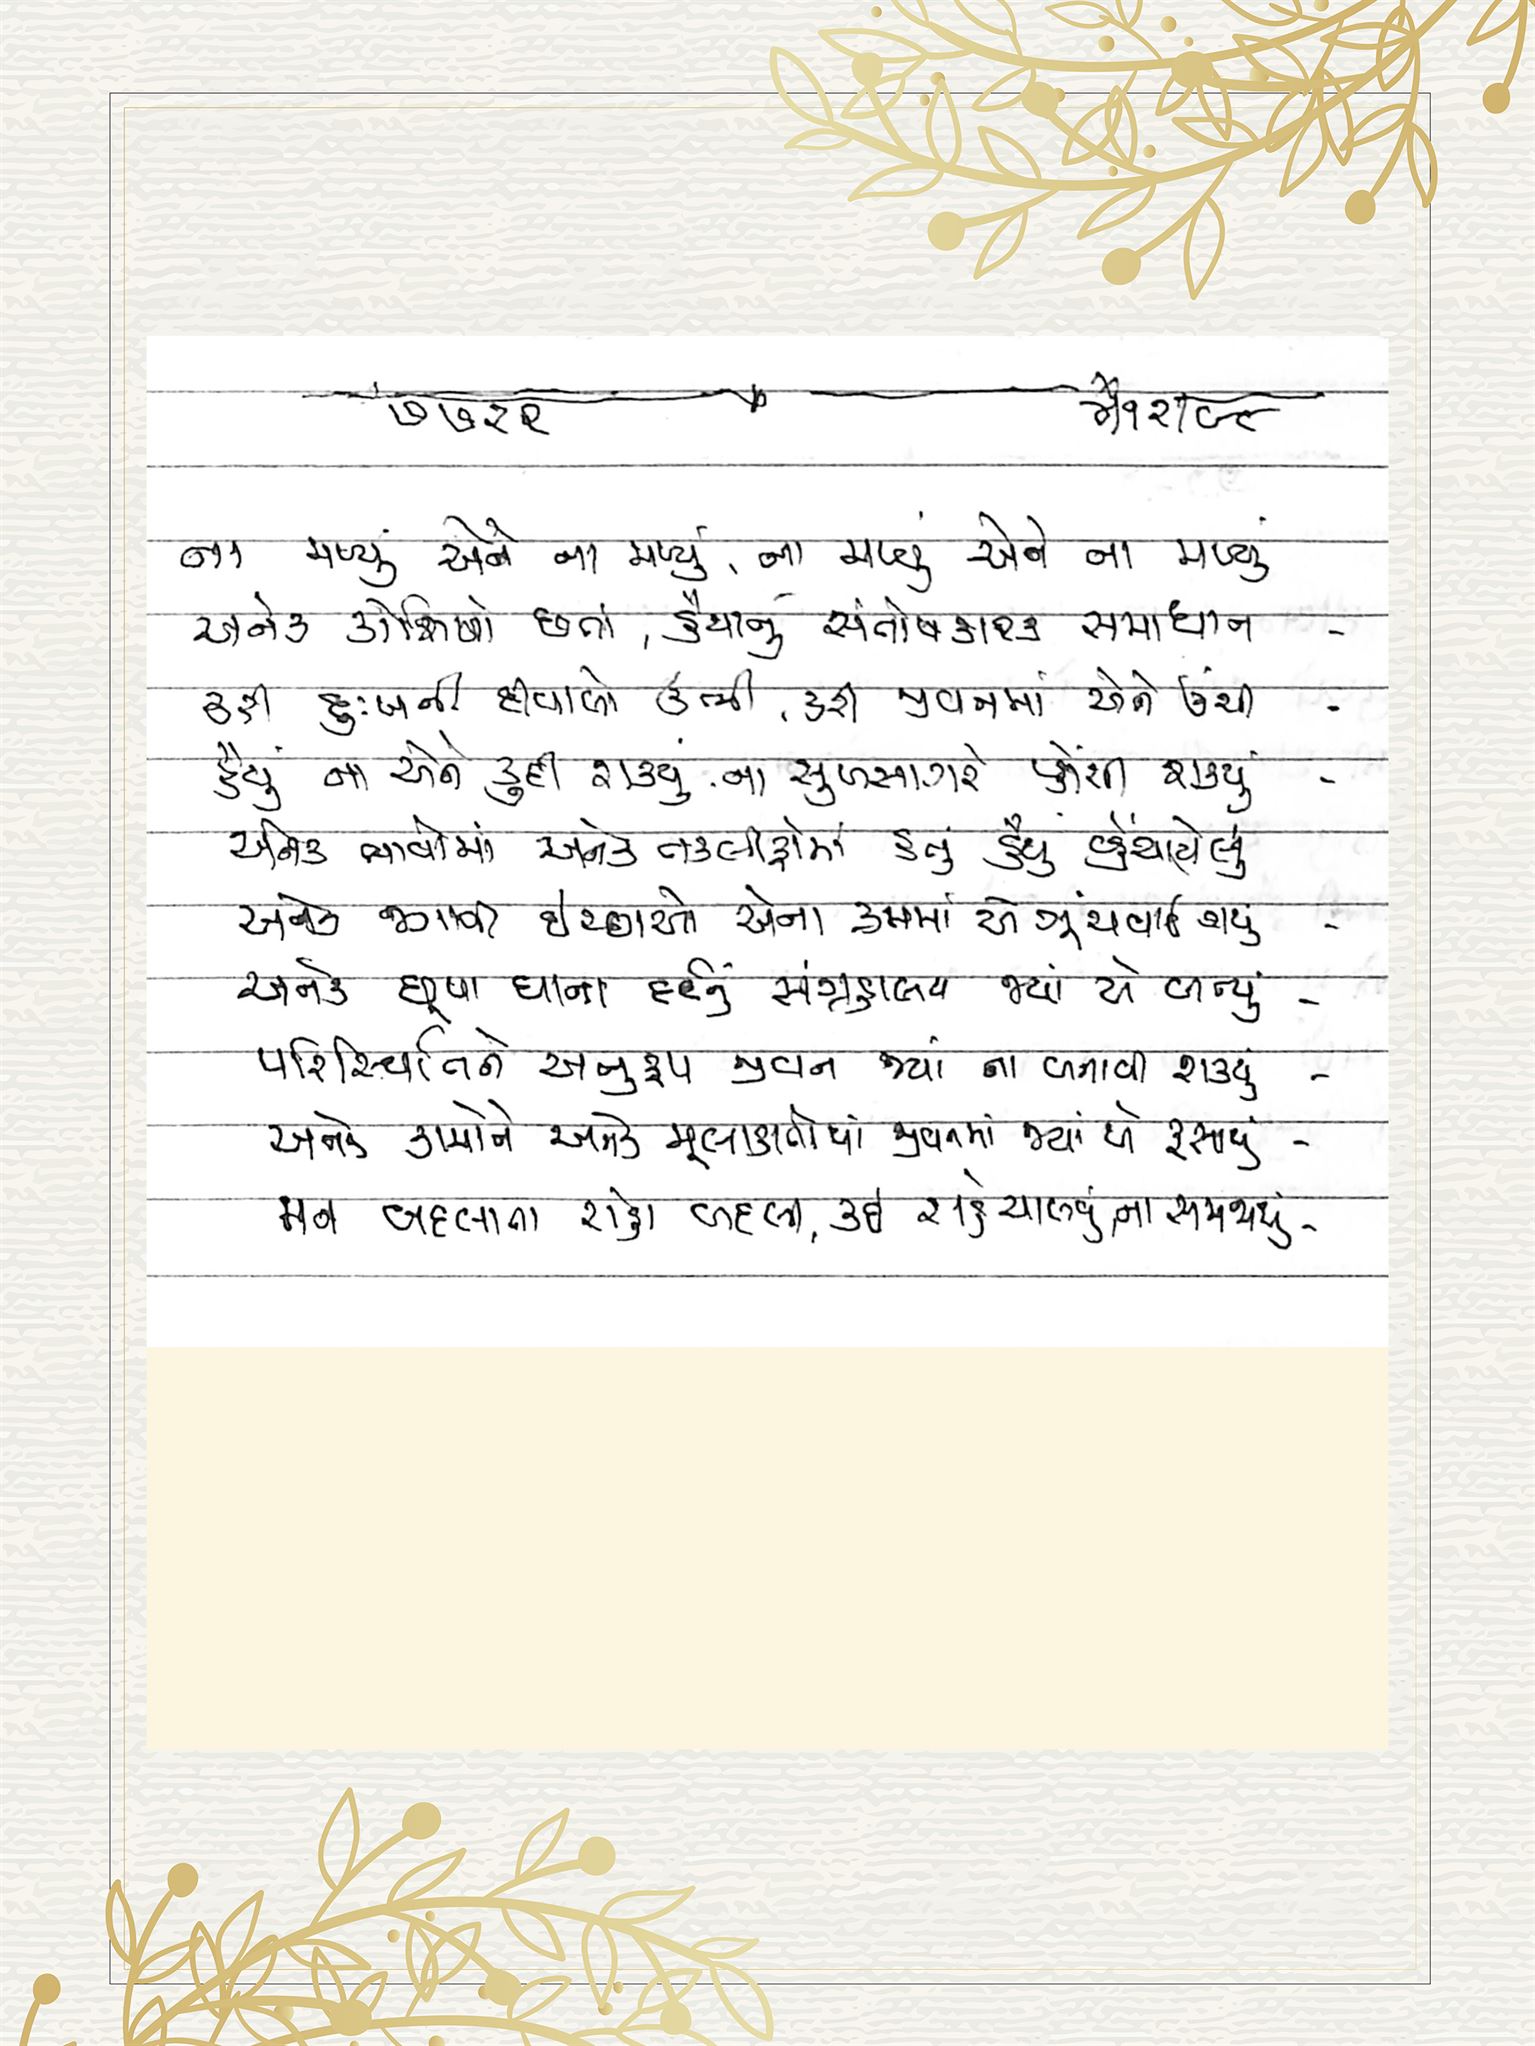 ૭૭૨૨
ના મળ્યું એને ના મળ્યું, ના મળ્યું એને ના મળ્યું
અનેક કોશિષો છતાં, હૈયાનું સંતોષકારક સમાધાન -
કરી દુઃખની દીવાલો ઉભી, કરી જીવનમાં એને ઉંચી -
હૈયું ના એને કુદી શક્યું, ના સુખસાગરે પ્હોંચી શક્યું -
અનેક ભાવોમાં અનેક તકલીફોમાં હતું હૈયું વ્હેંચાયેલું
અનેક જાગતી ઇચ્છાઓ એના ક્રમમાં એ ગૂંચવાઈ ગયું -
અનેક છૂપા ઘાના દર્દનું સંગ્રહાલય જ્યાં એ બન્યું -
પરિસ્થિતિને અનુરૂપ જીવન જ્યાં ના બનાવી શક્યું -
અનેક કામોને અનેક મૂલાકાતોમાં જીવનમાં જ્યાં એ ફસાયું -
મન બદલાતા રાહો બદલી, કઈ રાહે ચાલવું ના સમજાયું -